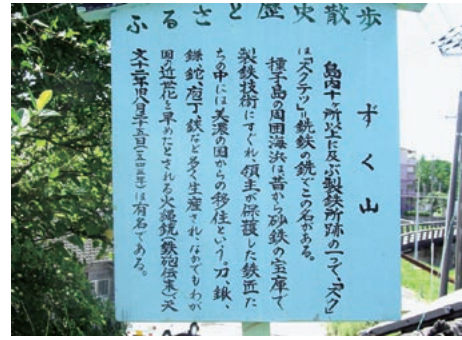 ふるさと歴史散歩
ずく山
島内十ヶ所以上に及ぶ製鉄所跡の一つで、「ズク」
は「ズクテツ」＝銑鉄の銑でこの名がある。
種子島の周囲海浜は昔から砂鉄の宝庫で
製鉄技術にすぐれ、領主が保護した鉄匠た
ちの中には美濃の国からの移住という。刀、鍬、
鎌、蛇、庖丁、鋏など多く生産され、なかでもわが
国の近世化を早めたとされる火縄銃(鉄砲伝来)、天
文十二年八月二十五日(一五四三年)は有名である。